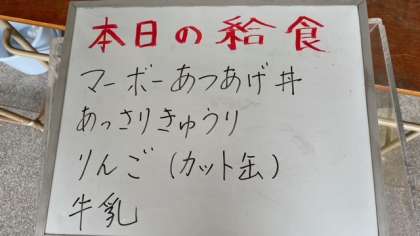 本日の給食
マーボーあつあげ丼
あっさりきゅうり
りんご(カット缶)
牛乳